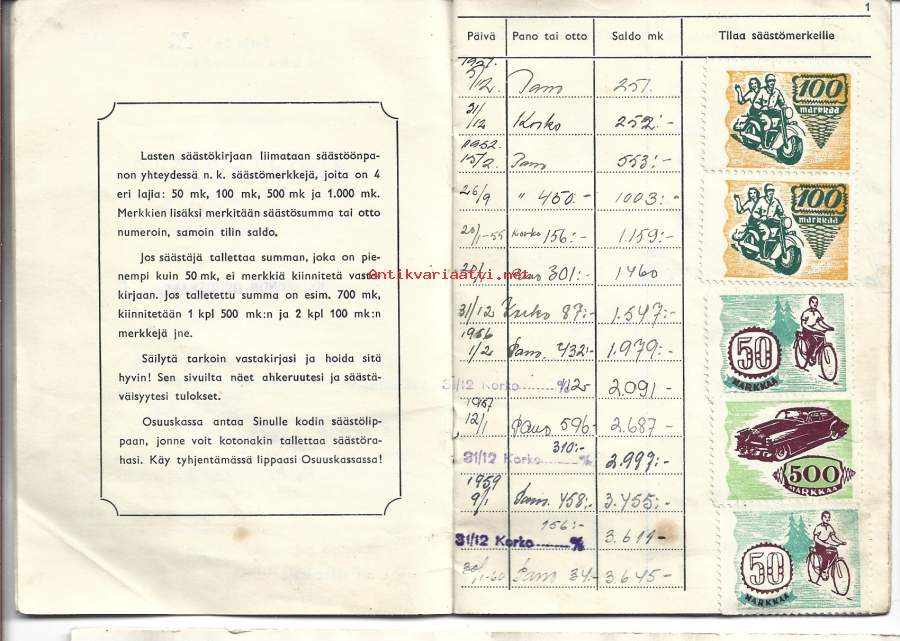 Lasten säästökirjaan liimataan säästöönpa-
non yhteydessä n. k. säästömerkkejä, joita on 4
eri lajia: 50 mk, 100 mk, 500 mk ja 1.000 mk.
Merkkien lisäksi merkitään säästösumma tai otto
numeroin, samoin tilin saldo.
Jos säästäjä tallettaa summan, joka on pie-
nempi kuin 50 mk, ei merkkiä kiinnitetä vasta-
kirjaan. Jos talletettu summa on esim. 700 mk,
kiinnitetään 1 kpl 500 mk:n ja 2 kpl 100 mk:n
merkkejä jne.
Säilytä tarkoin vastakirjasi ja hoida sitä
hyvin! Sen sivuilta näet ahkeruutesi ja säästä-
väisyytesi tulokset.
Osuuskassa antaa Sinulle kodin säästölip-
paan, jonne voit kotonakin tallettaa säästöra-
hasi. Käy tyhjentämässä lippaasi Osuuskassassa!
Antikvariaatti.net
1
Päivä Pano tai otto Saldo mk Tilaa säästömerkeille
/12. 251.
31/12 Korko 252:-
1952
15/2 553:-
26/9 " 450:- 1003:-
20/1-55 Korko 156:- 1.159:-
301:- 1460
31/12 Korko 87:- 1.547:-
1956
1/2 432:- 1.979:-
31/12 Korko % 2.091-
1957
12/1 596- 2.687-
310:-
31/12 Korko % 2.997:-
1959
9/1 458:- 3.455:-
156:-
31/12 Korko % 3.611-
/1-60 34:- 3.645-
100
markkaa
100
markkaa
50
MARKKAA
500
MARKKAA
50
MARKKAA